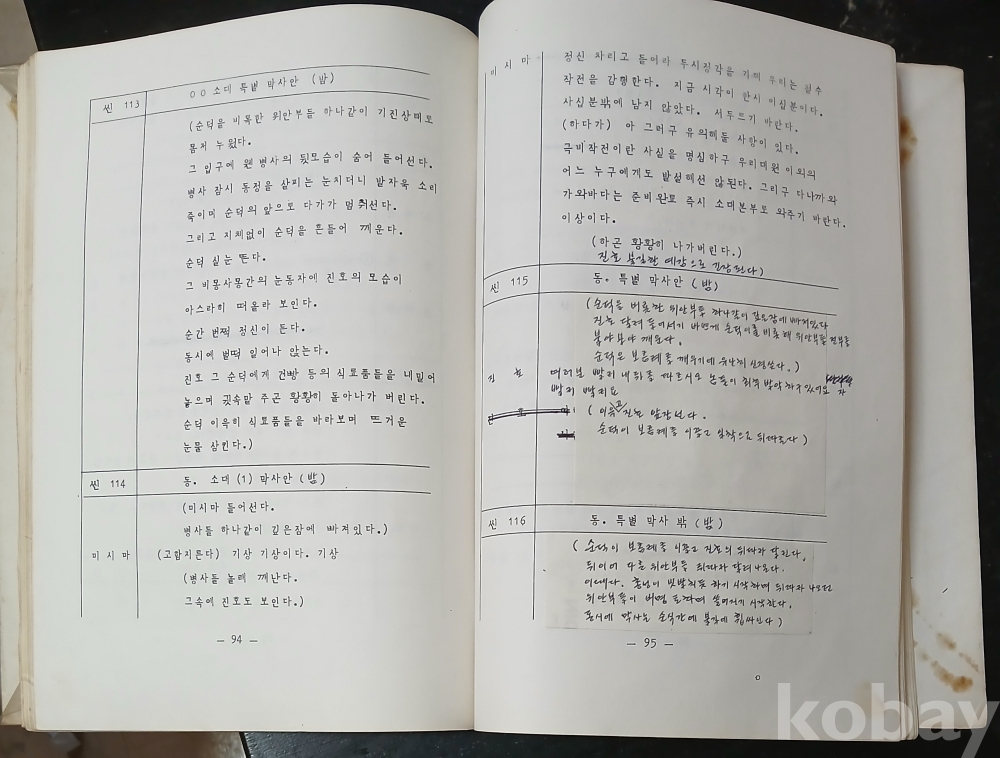 씬 113 00 소대 특별 막사안 (밤)
(순덕을 비롯한 위안부들 하나같이 기진상태로
몸져 누웠다.
그 입구에 웬 병사의 뒷모습이 숨어 들어선다.
병사 잠시 동정을 살피는 눈치더니 발자욱 소리
죽이며 순덕의 앞으로 다가가 멈춰선다.
그리고 지체없이 순덕을 흔들어 깨운다.
순덕 실눈 뜬다.
그 비몽사몽간의 눈동자에 진호의 모습이
아스라히 떠올라 보인다.
순간 번쩍 정신이 든다.
동시에 벌떡 일어나 앉는다.
진호 그 순덕에게 건빵 등의 식료품들을 내밀어
놓으며 귓속말 주곤 황황히 돌아나가 버린다.
순덕 이윽히 식료품들을 바라보며 뜨거운
눈물 삼킨다.)
씬 114 동. 소대 (1) 막사안 (밤)
(미시마 들어선다.
병사들 하나같이 깊은잠에 빠져있다.)
미시마 (고함지른다) 기상 기상이다. 기상
(병사들 놀래 깨난다.
그속에 진호도 보인다.)
— 94 —
미시마 정신 차리고 들어라 두시정각을 기해 우리는 철수
작전을 감행한다. 지금 시각이 한시 이십분이다.
사십분밖에 남지 않았다. 서두르기 바란다.
(하다가) 아 그러구 유의해둘 사항이 있다.
극비작전이란 사실을 명심하구 우리대원 이외의
어느 누구에게도 발설해선 않된다. 그리구 다나까와
가와바다는 준비완료 즉시 소대본부로 와주기 바란다.
이상이다.
(하곤 황황히 나가버린다.)
진호 불길한 예감으로 긴장한다)
씬 115 동. 특별 막사안 (밤)
(순덕을 비롯한 위안부들 하나같이 깊은잠에 빠져있다
진호 달려 들어서기 바쁘게 순덕이를 비롯해 위안부들 전부를
깨운다.
순덕은 보름례를 깨우기에
진호 여러분 빨리 내뒤를 따르시오
빨리 빨리요
(이윽고 진호 앞장선다.
순덕이 보름례를 이끌고 뒤따른다)
씬 116 동. 특별 막사 밖 (밤)
(순덕이 보름례를 이끌고 진호의 뒤따라 달린다.
뒤이어 다른 위안부들 뒤따라 달려나온다.
이때다. 총탄이 빗발치듯 하기 시작하며 뒤따라 나오던
위안부들이 비명 토하며 쓰러지기 시작한다.
동시에 막사는 순식간에 불길에 휩싸인다)
— 95 —
kobay